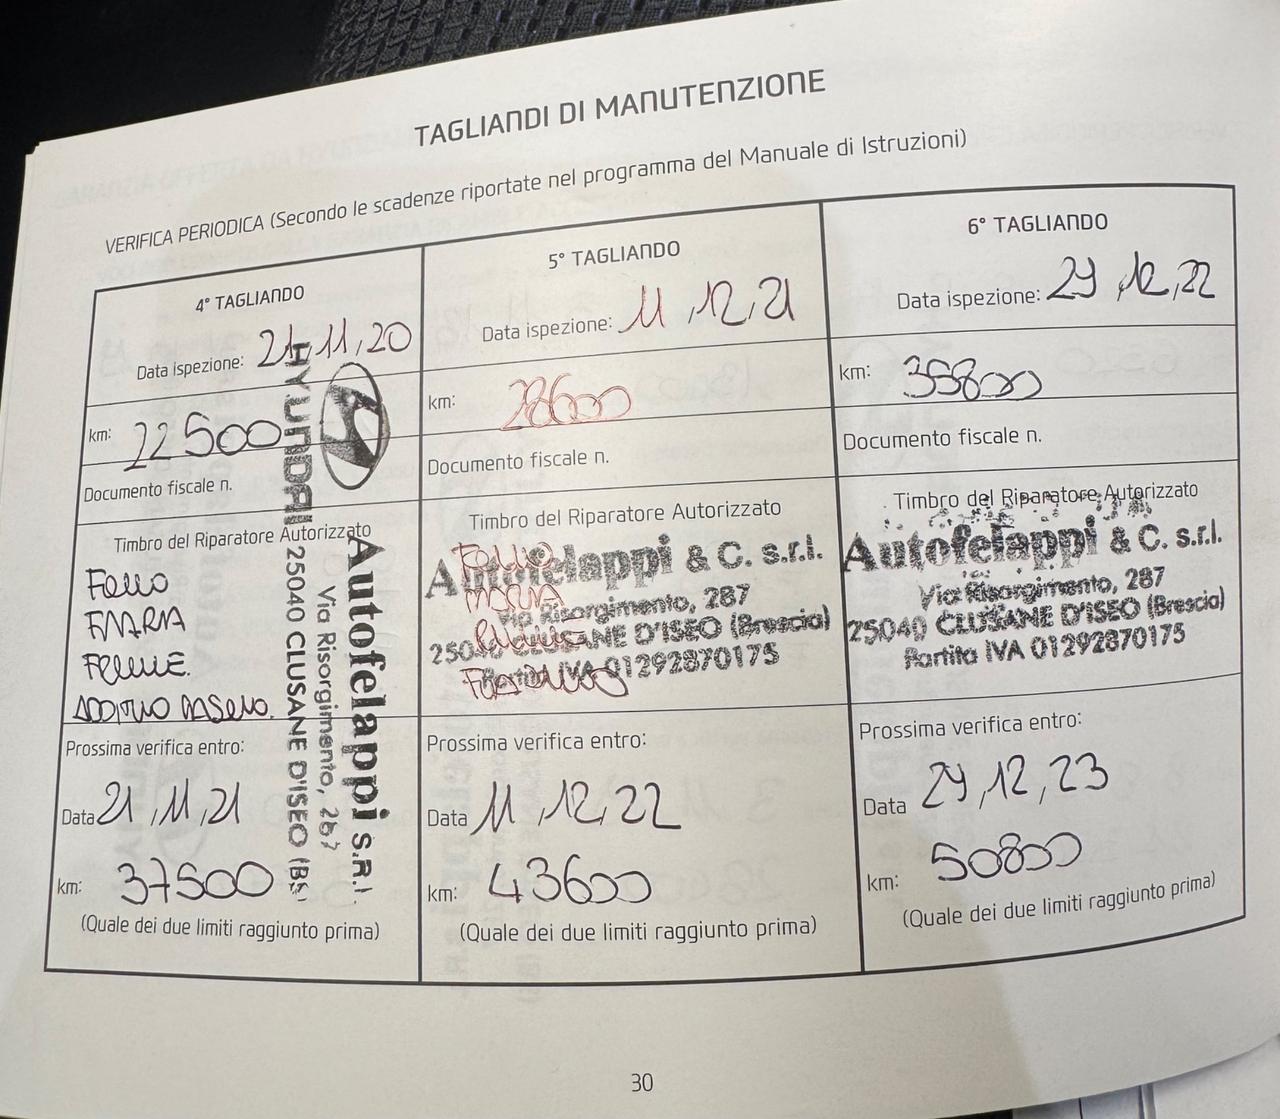 TAGLIANDI DI MANUTENZIONE
VERIFICA PERIODICA (Secondo le scadenze riportate nel programma del Manuale di Istruzioni)
4° TAGLIANDO
Data ispezione: 21,11,20
km: 22500
Documento fiscale n.
Timbro del Riparatore Autorizzato
HYUNDAI
Autofelappi S.R.L.
Via Risorgimento, 287
25040 CLUSANE D'ISEO (BS)
Prossima verifica entro:
Data 21,11,21
km: 37500
(Quale dei due limiti raggiunto prima)
5° TAGLIANDO
Data ispezione: 11,12,21
km: 28600
Documento fiscale n.
Timbro del Riparatore Autorizzato
Autofelappi & C. s.r.l.
Via Risorgimento, 287
25040 CLUSANE D'ISEO (Brescia)
Partita IVA 01292870175
Prossima verifica entro:
Data 11,12,22
km: 43600
(Quale dei due limiti raggiunto prima)
6° TAGLIANDO
Data ispezione: 29,12,22
km: 35800
Documento fiscale n.
Timbro del Riparatore Autorizzato
Autofelappi & C. s.r.l.
Via Risorgimento, 287
25040 CLUSANE D'ISEO (Brescia)
Partita IVA 01292870175
Prossima verifica entro:
Data 29,12,23
km: 50800
(Quale dei due limiti raggiunto prima)
30